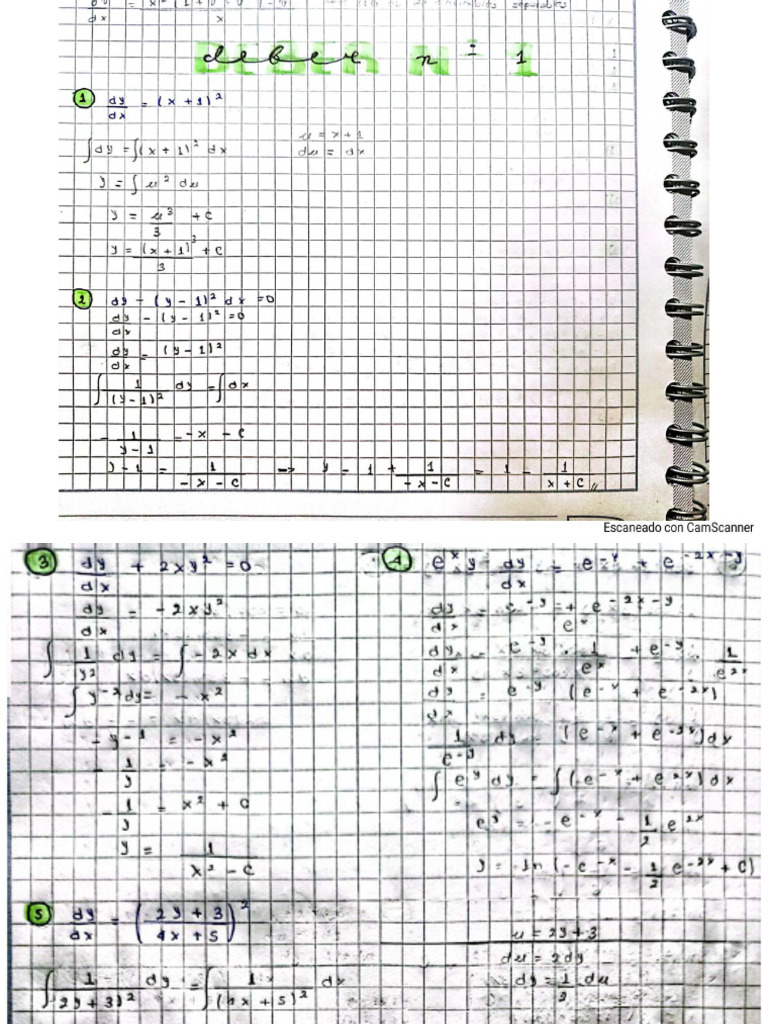 deber n = 1
1 dy/dx = (x + 1)²
∫ dy = ∫ (x + 1)² dx
u = x + 1
du = dx
y = ∫ u² du
y = u³/3 + C
y = (x + 1)³/3 + C
2 dy - (y - 1)² dx = 0
dy/dx - (y - 1)² = 0
dy/dx = (y - 1)²
∫ 1/(y - 1)² dy = ∫ dx
- 1/(y - 1) = - x - C
y - 1 = 1/(- x - C) → y = 1 + 1/(- x - C) = 1 - 1/(x + C) //
Escaneado con CamScanner
3 dy/dx + 2xy² = 0
dy/dx = - 2xy²
∫ 1/y² dy = ∫ - 2x dx
∫ y⁻² dy = - x²
- y⁻¹ = - x²
- 1/y = - x²
- 1/y = x² + C
y = 1/(x² - C)
4 eˣ y dy/dx = e⁻ʸ + e^(-2x-y)
dy/dx = e⁻ʸ + e^(-2x-y) / eˣ
dy/dx = e⁻ʸ · 1/eˣ + e⁻ʸ · 1/e²ˣ
dy/dx = e⁻ʸ (e⁻ˣ + e⁻²ˣ)
1/e⁻ʸ dy = (e⁻ˣ + e⁻²ˣ) dx
∫ eʸ dy = ∫ (e⁻ˣ + e²ˣ) dx
eʸ = - e⁻ˣ - 1/2 e²ˣ
y = ln (- e⁻ˣ - 1/2 e⁻²ˣ + C)
5 dy/dx = (2y + 3 / 4x + 5)²
∫ 1/(2y + 3)² dy = ∫ 1/(4x + 5)² dx
u = 2y + 3
du = 2dy
dy = 1/2 du